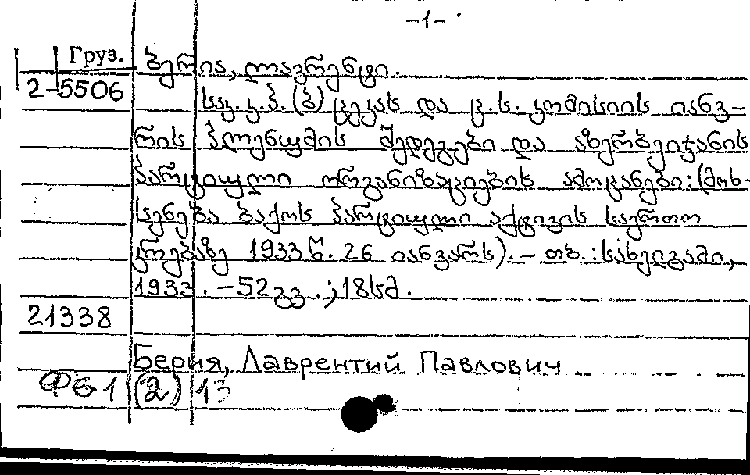 -1-
Груз. ბერია, ლავრენტი.
2-5506 საკ.კ.პ.(ბ) ცეკას და ც.ს. კომისიის იანვ-
რის პლენუმის შედეგები და აზერბეიჯანის
პარტიული ორგანიზაციების ამოცანები: (მოხ-
სენება ბაქოს პარტიული აქტივის საერთო
კრებაზე 1933 წ. 26 იანვარს). – თბ.: სახელგამი,
1933. – 52 გვ.; 18 სმ.
21338
Берия, Лаврентий Павлович
ФБ1 (2) 13